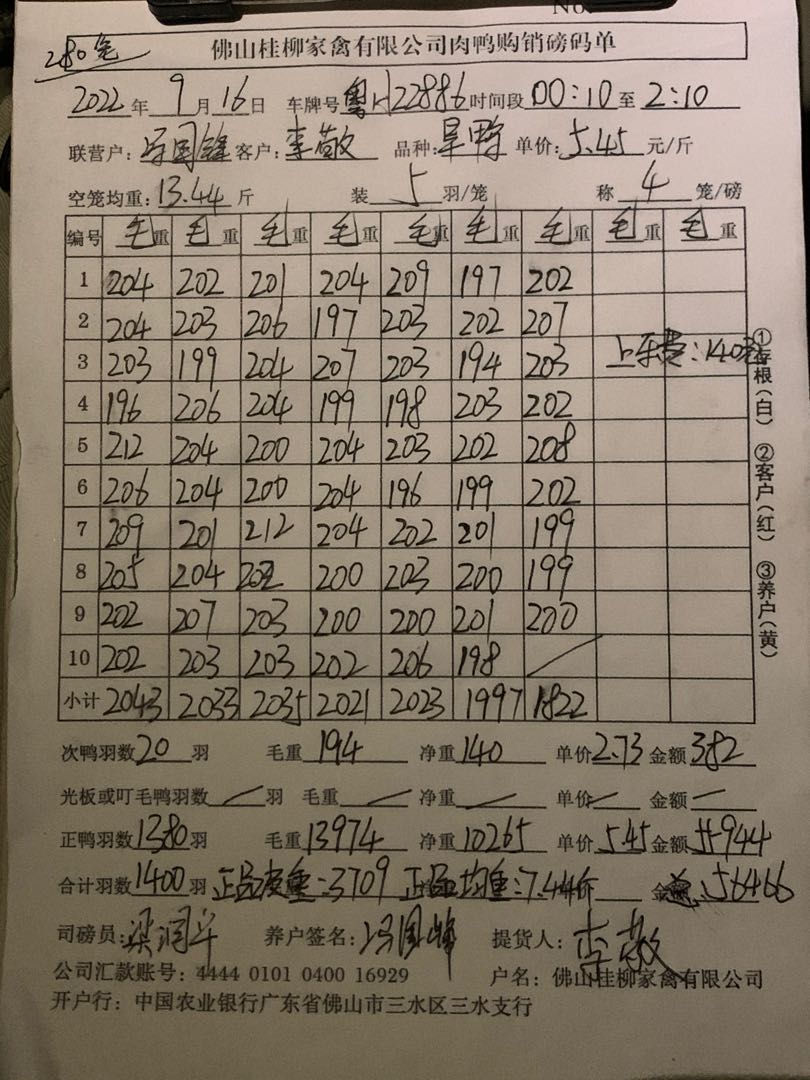 No.
280笼
佛山桂柳家禽有限公司肉鸭购销磅码单
2022年 9月 16日 车牌号 粤 22886 时间段 00:10 至 2:10
联营户: 冯国锋 客户: 李敬 品种: 旱鸭 单价: 5.45 元/斤
空笼均重: 13.44 斤 装 5 羽/笼 称 4 笼/磅
编号 毛重 毛重 毛重 毛重 毛重 毛重 毛重 毛重 毛重
1 204 202 201 204 209 197 202
2 204 203 206 197 203 202 207
3 203 199 204 207 203 194 203 上车费:140
4 196 206 204 199 198 203 202
5 212 204 200 204 203 202 208
6 206 204 200 204 196 199 202
7 209 201 212 204 202 201 199
8 205 204 202 200 203 200 199
9 202 207 203 200 200 201 200
10 202 203 203 202 206 198
小计 2043 2033 2035 2021 2023 1997 1822
①存根(白) ②客户(红) ③养户(黄)
次鸭羽数 20 羽 毛重 194 净重 140 单价 2.73 金额 382
光板或叮毛鸭羽数 羽 毛重 净重 单价 金额
正鸭羽数 1380 羽 毛重 13974 净重 10265 单价 5.45 金额 55944
合计羽数 1400 羽 正品皮重:3709 正品均重:7.44 价 金 56466
司磅员: 梁润华 养户签名: 冯国锋 提货人: 李敬
公司汇款账号: 4444 0101 0400 16929 户名: 佛山桂柳家禽有限公司
开户行: 中国农业银行广东省佛山市三水区三水支行